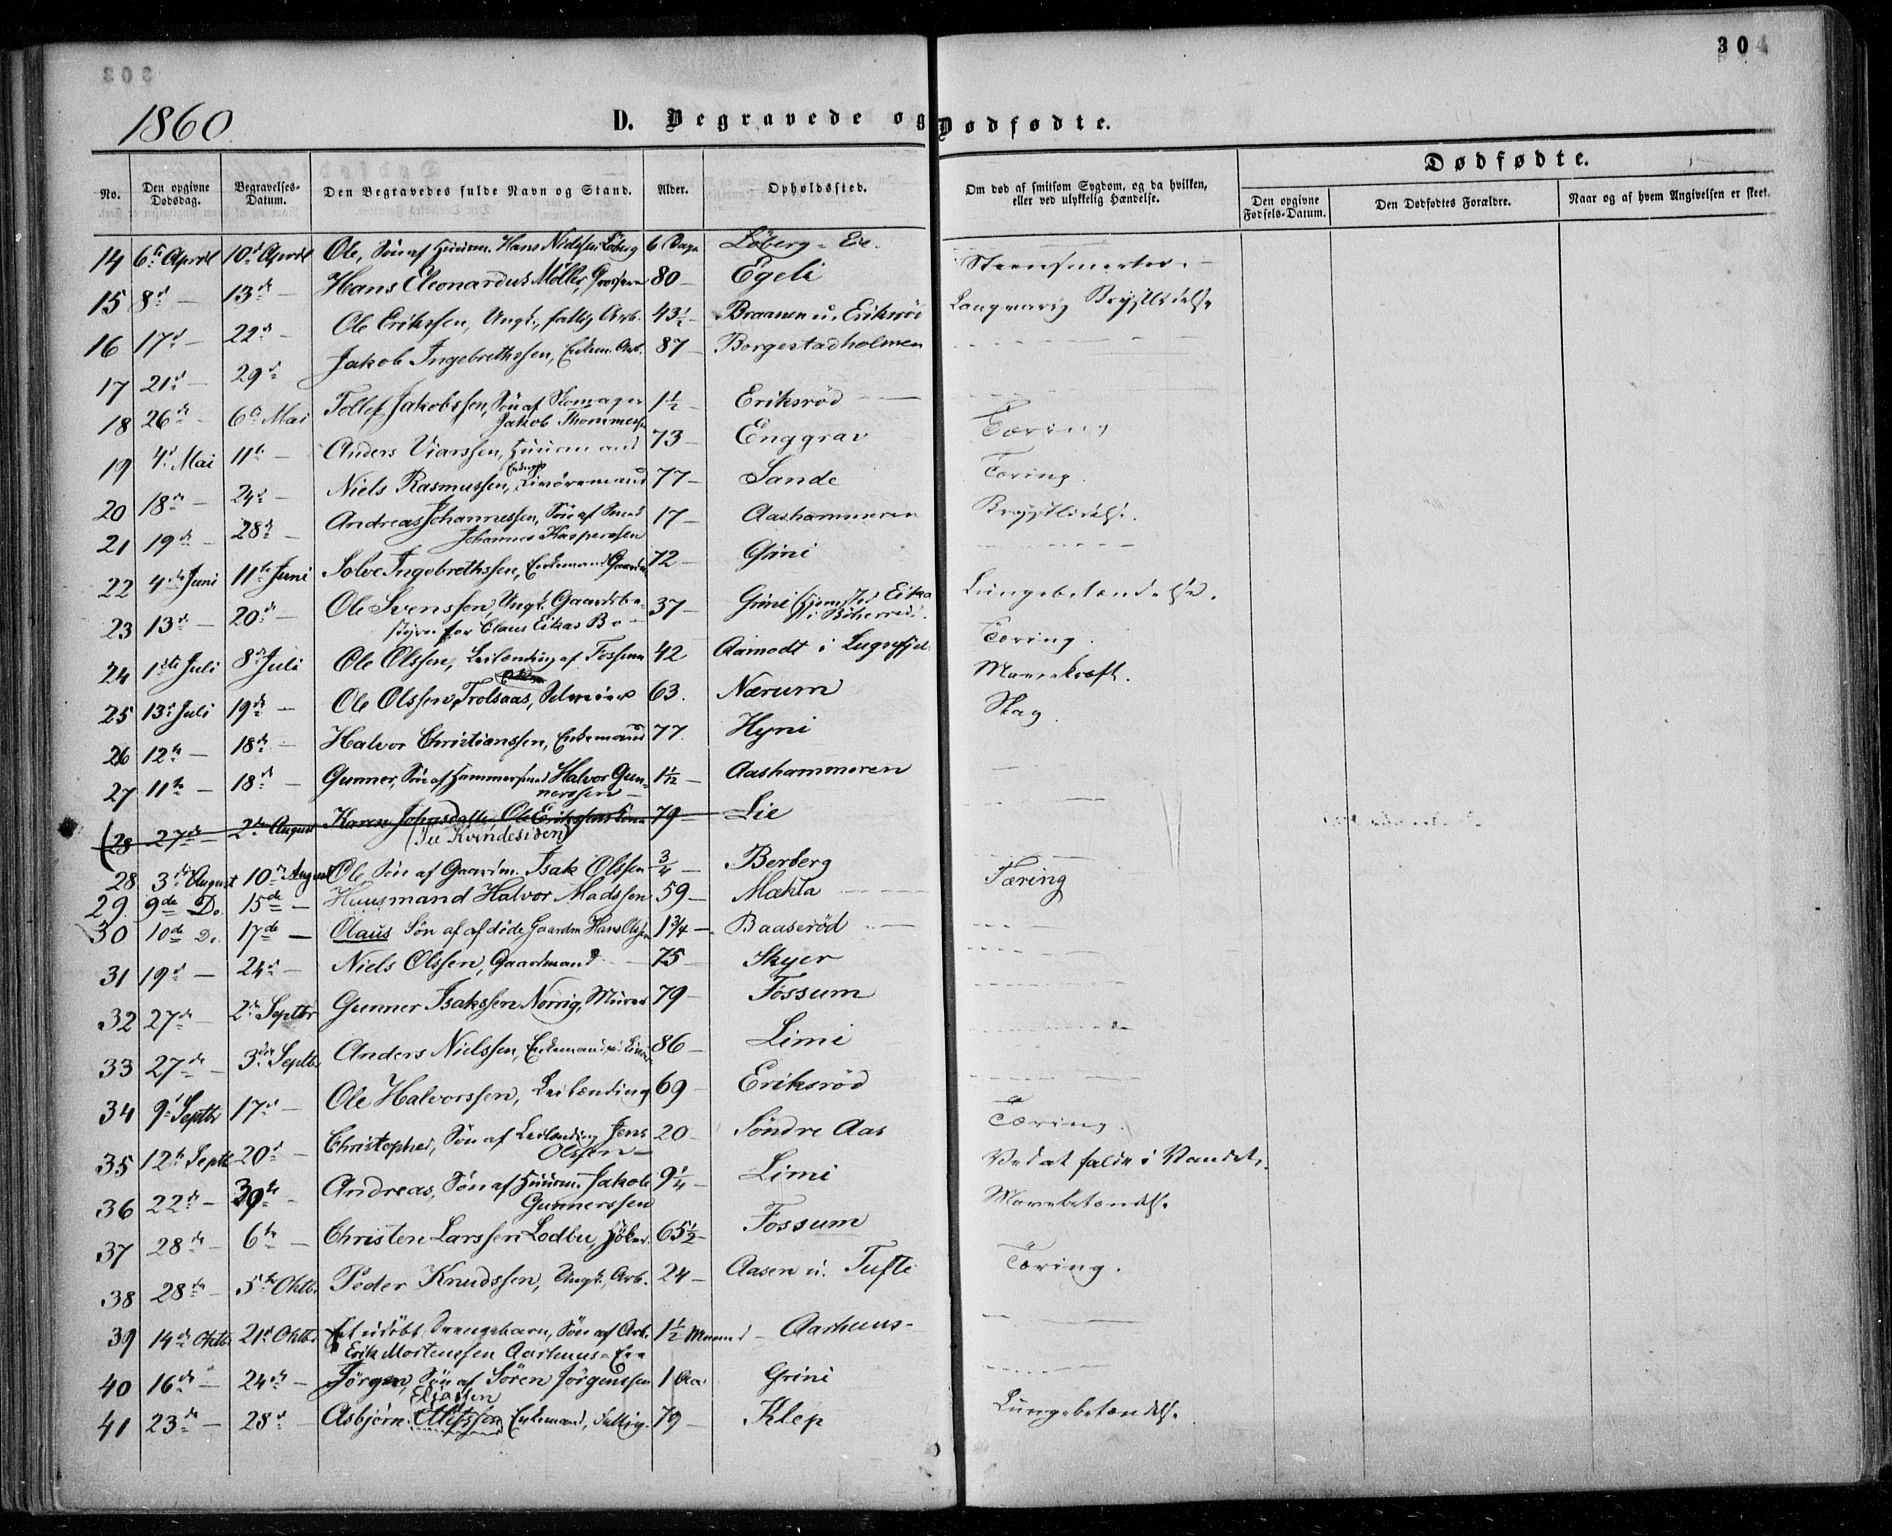 304
1860
D. Begravede og Dødfødte.
No. Den opgivne Dødsdag. Begravelses-Datum. Den Begravedes fulde Navn og Stand. Alder. Opholdssted. Om død af smitsom Sygdom, og da hvilken, eller ved ulykkelig Hændelse. Dødfødte.
Den opgivne Fødsels-Datum. Den Dødfødtes Forældre. Naar og af hvem Angivelsen er skeet.
14 6te April 10de April Ole, Søn af Huusm. Hans Nielsen Löberg 6 Dage Löberg-Eie.
15 8de — 13de — Hans Eleonardus Möller, 80 — Egeli Steensmerter. —
16 17de — 22de — Ole Erikssen, Ungk., fattig Arb. 43½ — Braanen u. Eriksröd Langvarig Brystlidelse
17 21de — 29de Jakob Ingebrethssen, Enkem. Arb. 87 — Borgestadholmen
18 26de — 6te Mai Tollef Jakobssen, Søn af Skomager 1½ — Eriksröd
Jakob Thommessen
19 4de Mai 11te — Anders Viarssen, Huusmand 73 — Enggrav Tæring
20 18de — 24de — Niels Rasmussen, 77 — Sande Tæring.
21 19de — 28de — Andreas Johannessen, Søn af Smed 17 — Aashammeren Brystlidelse.
Johannes Kasperssen
22 4de Juni 11te Juni Solve Ingebrethssen, Enkemand 72 — Grini
23 13de — 20de — Ole Svenssen, Ungk. Gaardsbe- 37 — Grini (Hjemsted Eika Lungebetændelse.
styrer for Claus Eikas Bo — i Böherred).
24 1ste Juli 8de Juli Ole Olssen, Leilænding af Fossum 42 Aamodt i Luggfjel Tæring.
25 13de Juli 19de — Ole Olssen Trolsaas, 63. Nærum Mavekræft.
26 12te — 18de — Halvor Christianssen, Enkemand 77. Hyni Slag.
27 11te — 18de — Gunner, Søn af Hammersmed Halvor Gun- 1½ — Aashammeren
nerssen —
(28 27de 2den August Karen Johnsdatter Ole Erikssens Kone 79 — Lie
(Til Kvindesiden)
28 3de August 10de August Ole Søn af Gaardm. Isak Olssen ¾ — Berberg
29. 9de Do. 15de — Huusmand Halvor Madssen 59 — Mæhla Tæring
30 10de Do. 17de — Olaus Søn af afdöde Gaardm Hans Olssen 1¾ — Baaseröd
31 19de — 24de — Niels Olssen, Gaardmand 75 — Skyer
32 27de — 2den Septbr Gunner Isakssen Norrig, Murer 79 — Fossum
33 27de — 3die Septbr Anders Nielssen, Enkemand 86 — Limi
34 9de Septbr 17de — Ole Halvorssen, Leilænding 69 — Eriksröd
35 12te Septb 20de — Christopher, Søn af Leilænding Jens 20 — Söndre Aas Tæring.
Olssen —
36 22de — 30te — Andreas, Søn af Huusm. Jakob 9¼ — Limi Ved at falde i Vandet.
Gunnerssen
37 28de — 6te — Christen Larssen Lodbu, Höker 65½ — Fossum Mavebetændelse
38 28de — 5te Oktbr Peder Knudssen, Ungk. Arb. 24 — Aasen u. Tufte Tæring.
39 14de Oktbr 21de Oktbr Et udöbt Drengebarn, Søn af Arb. 1½ Maaned — Aarhuus-
Erik Mortenssen Aarhuus-Eie
40 16de — 24de — Jörgen, Søn af Sören Jörgenssen 1 Grini
41 23de — 28de — Asbjørn Eliassen Enkemand, 79 — Klep Lungebetændelse